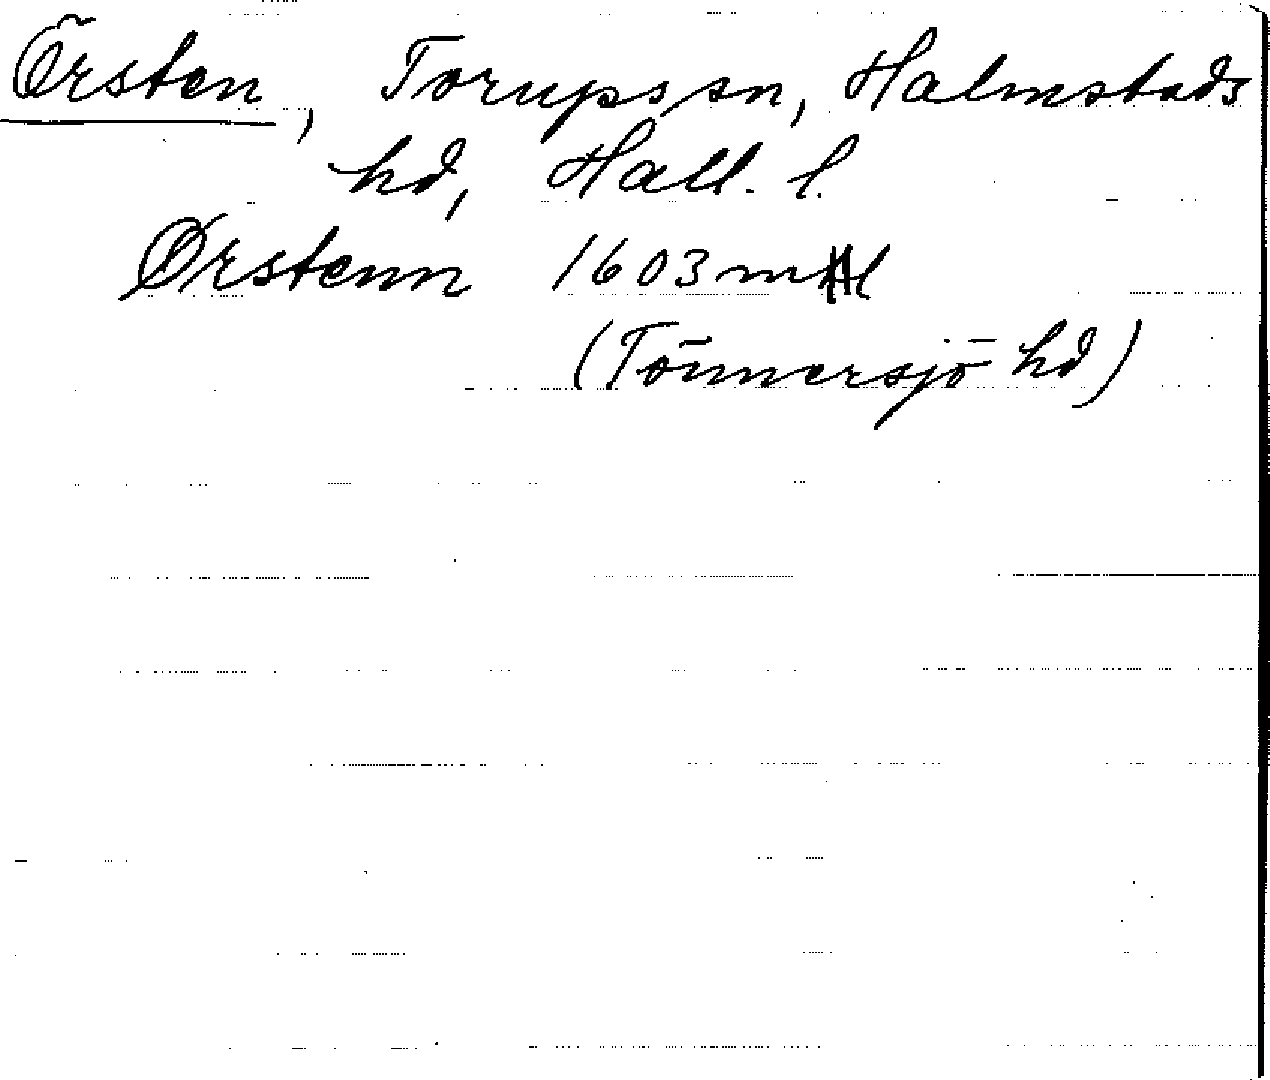 Örsten, Torups sn, Halmstads
hd, Hall. l.
Ørstenn 1603
(Tönnersjö hd)